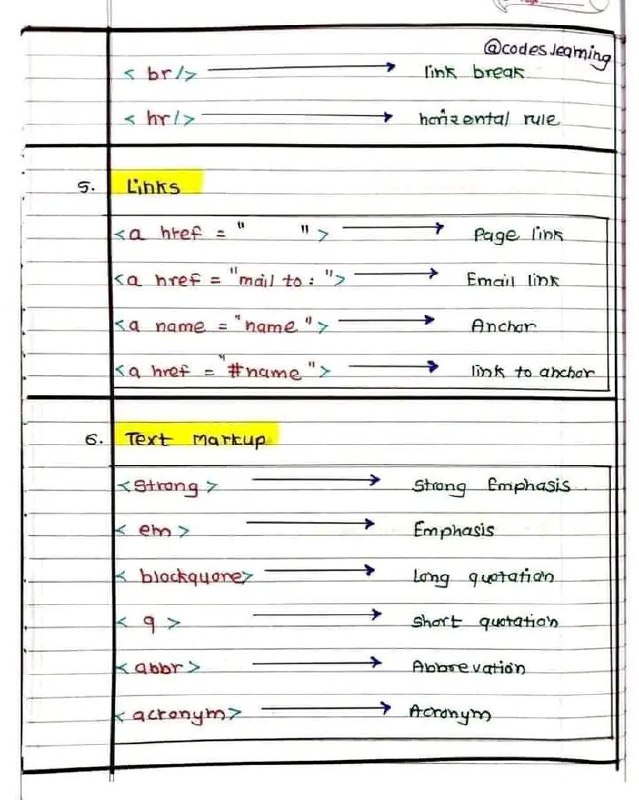 @codes.learning
< br/> → link break
< hr/> → horizental rule
5. Links
<a href = " "> → Page link
<a href = "mail to: "> → Email link
<a name = "name"> → Anchor
<a href = "#name"> → link to anchor
6. Text Markup
<strong> → Strong Emphasis
< em> → Emphasis
< blockquore> → Long quotation
< q > → Short quotation
< abbr> → Abbrevation
< acronym> → Acronym